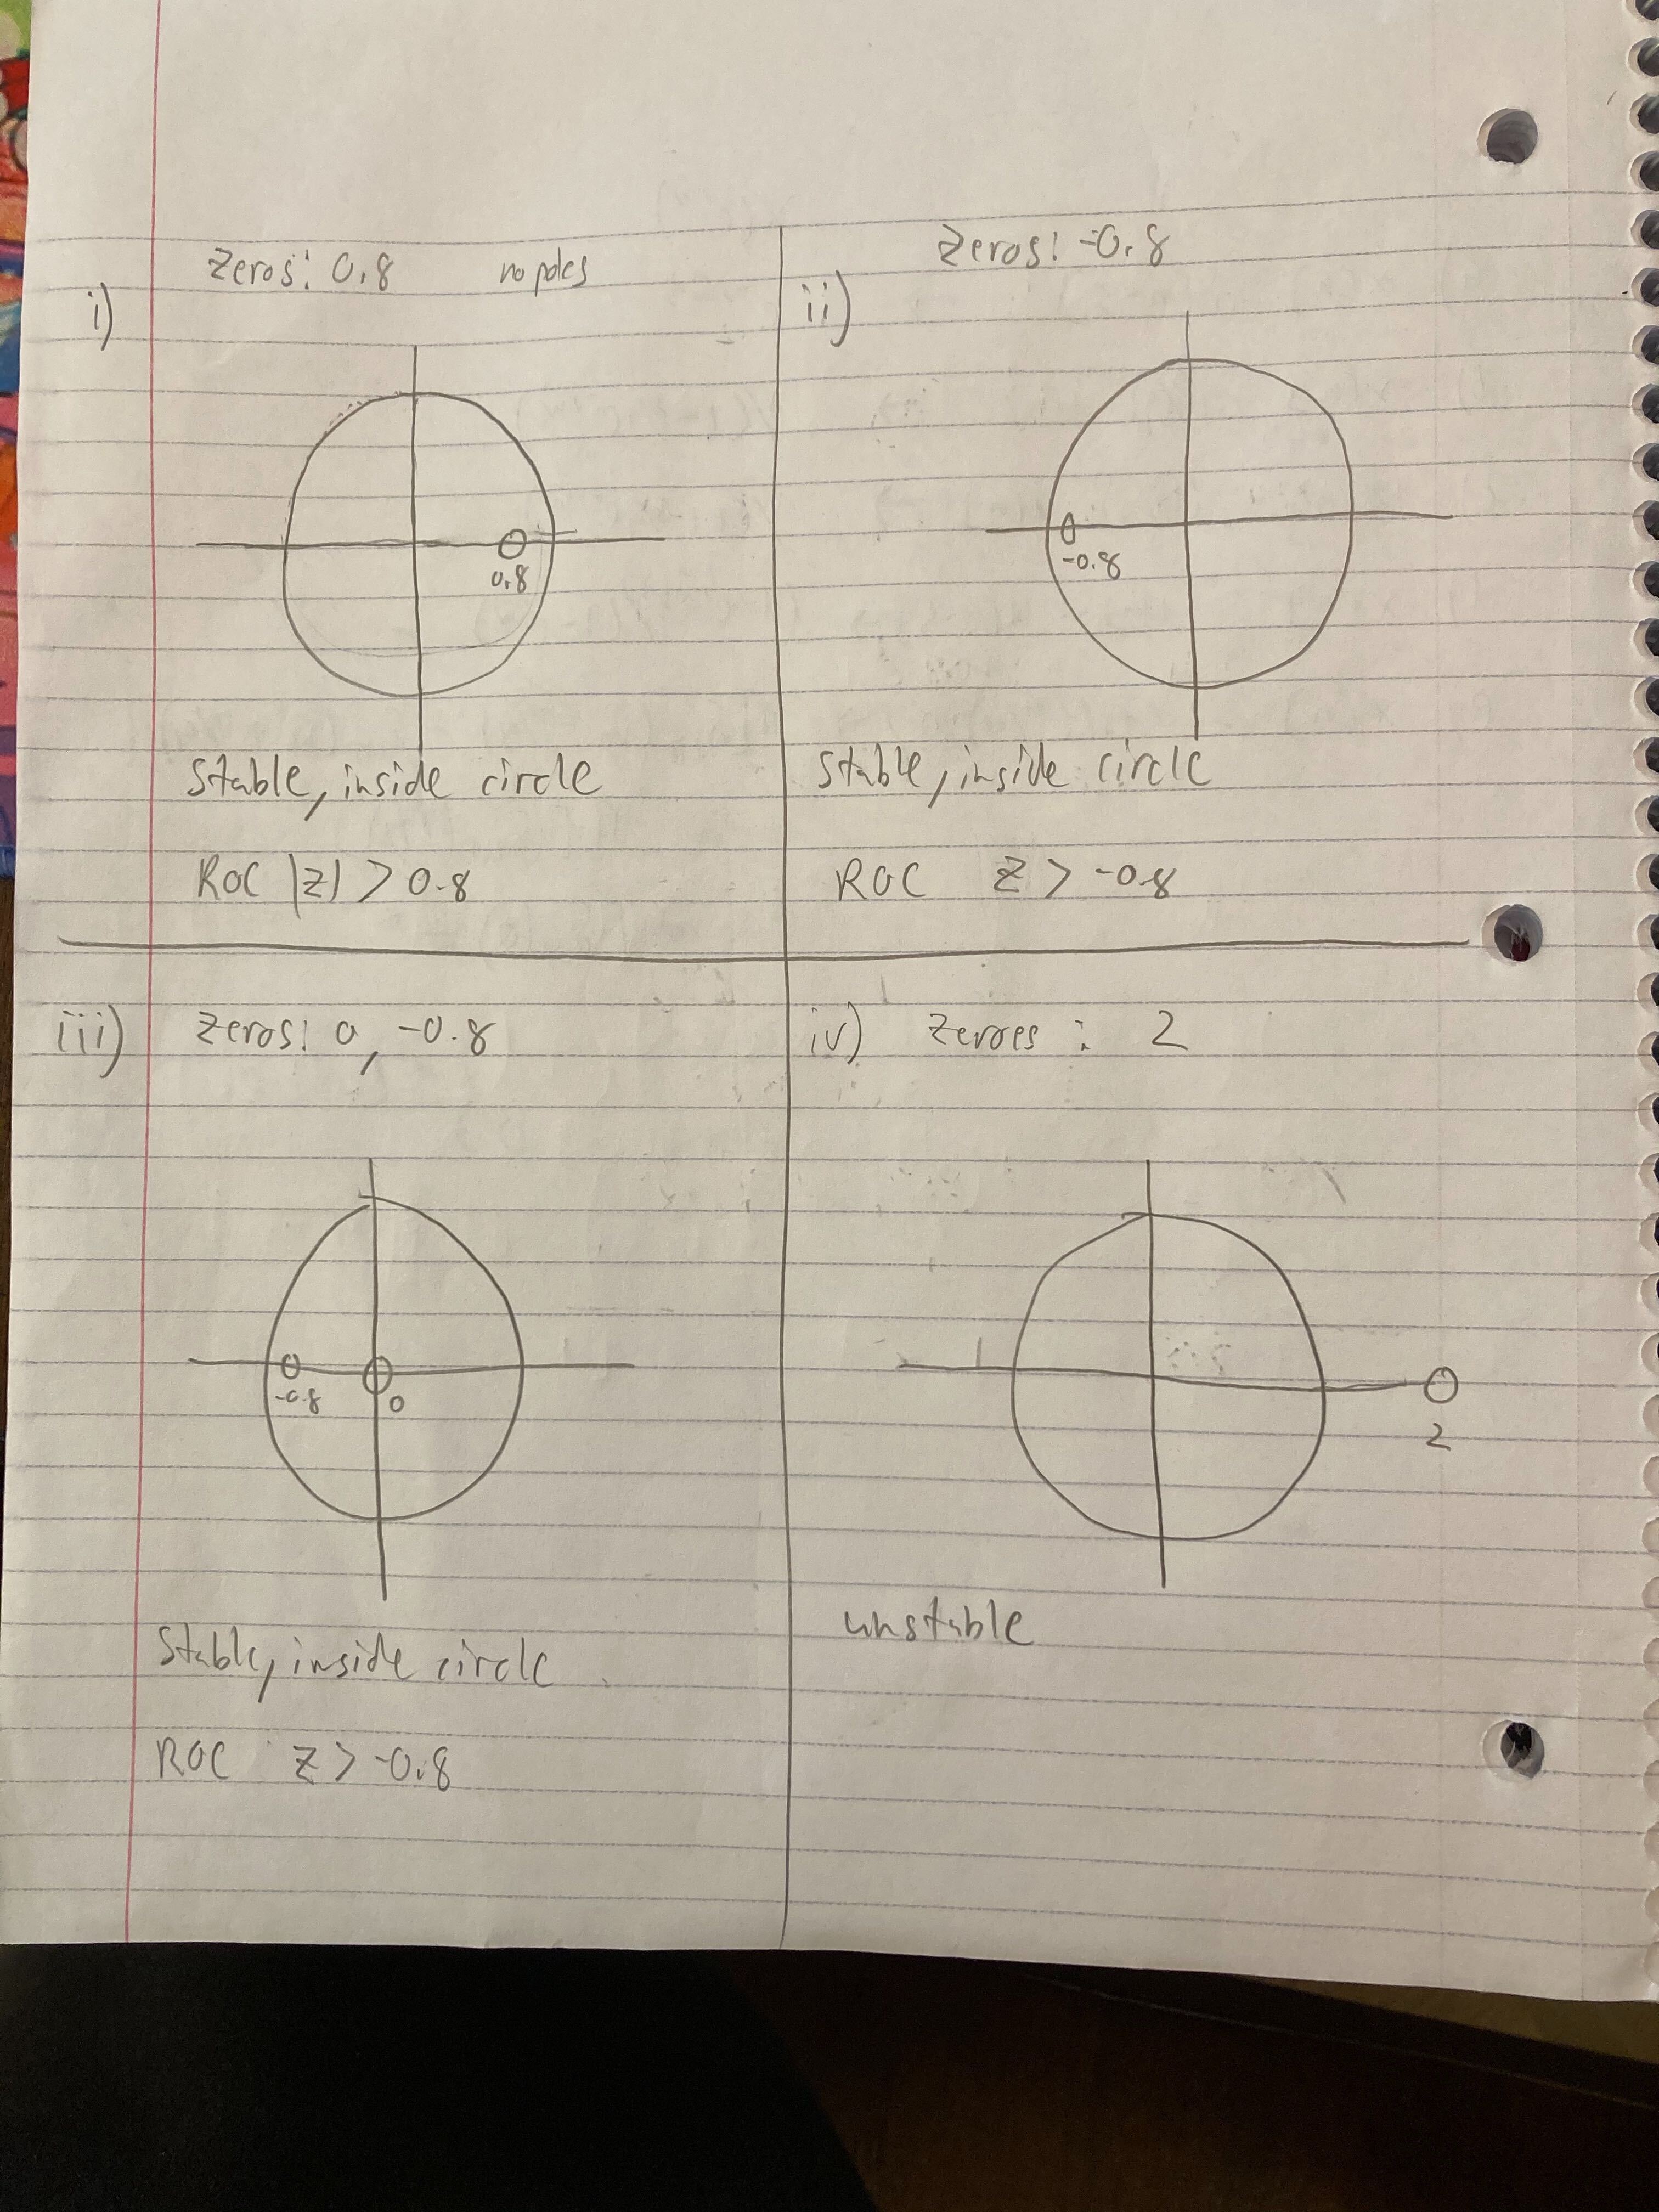 i)
Zeros: 0.8 no poles
0.8
Stable, inside circle
ROC |z| > 0.8
ii)
Zeros: -0.8
-0.8
Stable, inside circle
ROC z > -0.8
iii) Zeros: 0, -0.8
-0.8 0
Stable, inside circle
ROC z > -0.8
iv) Zeroes : 2
2
unstable